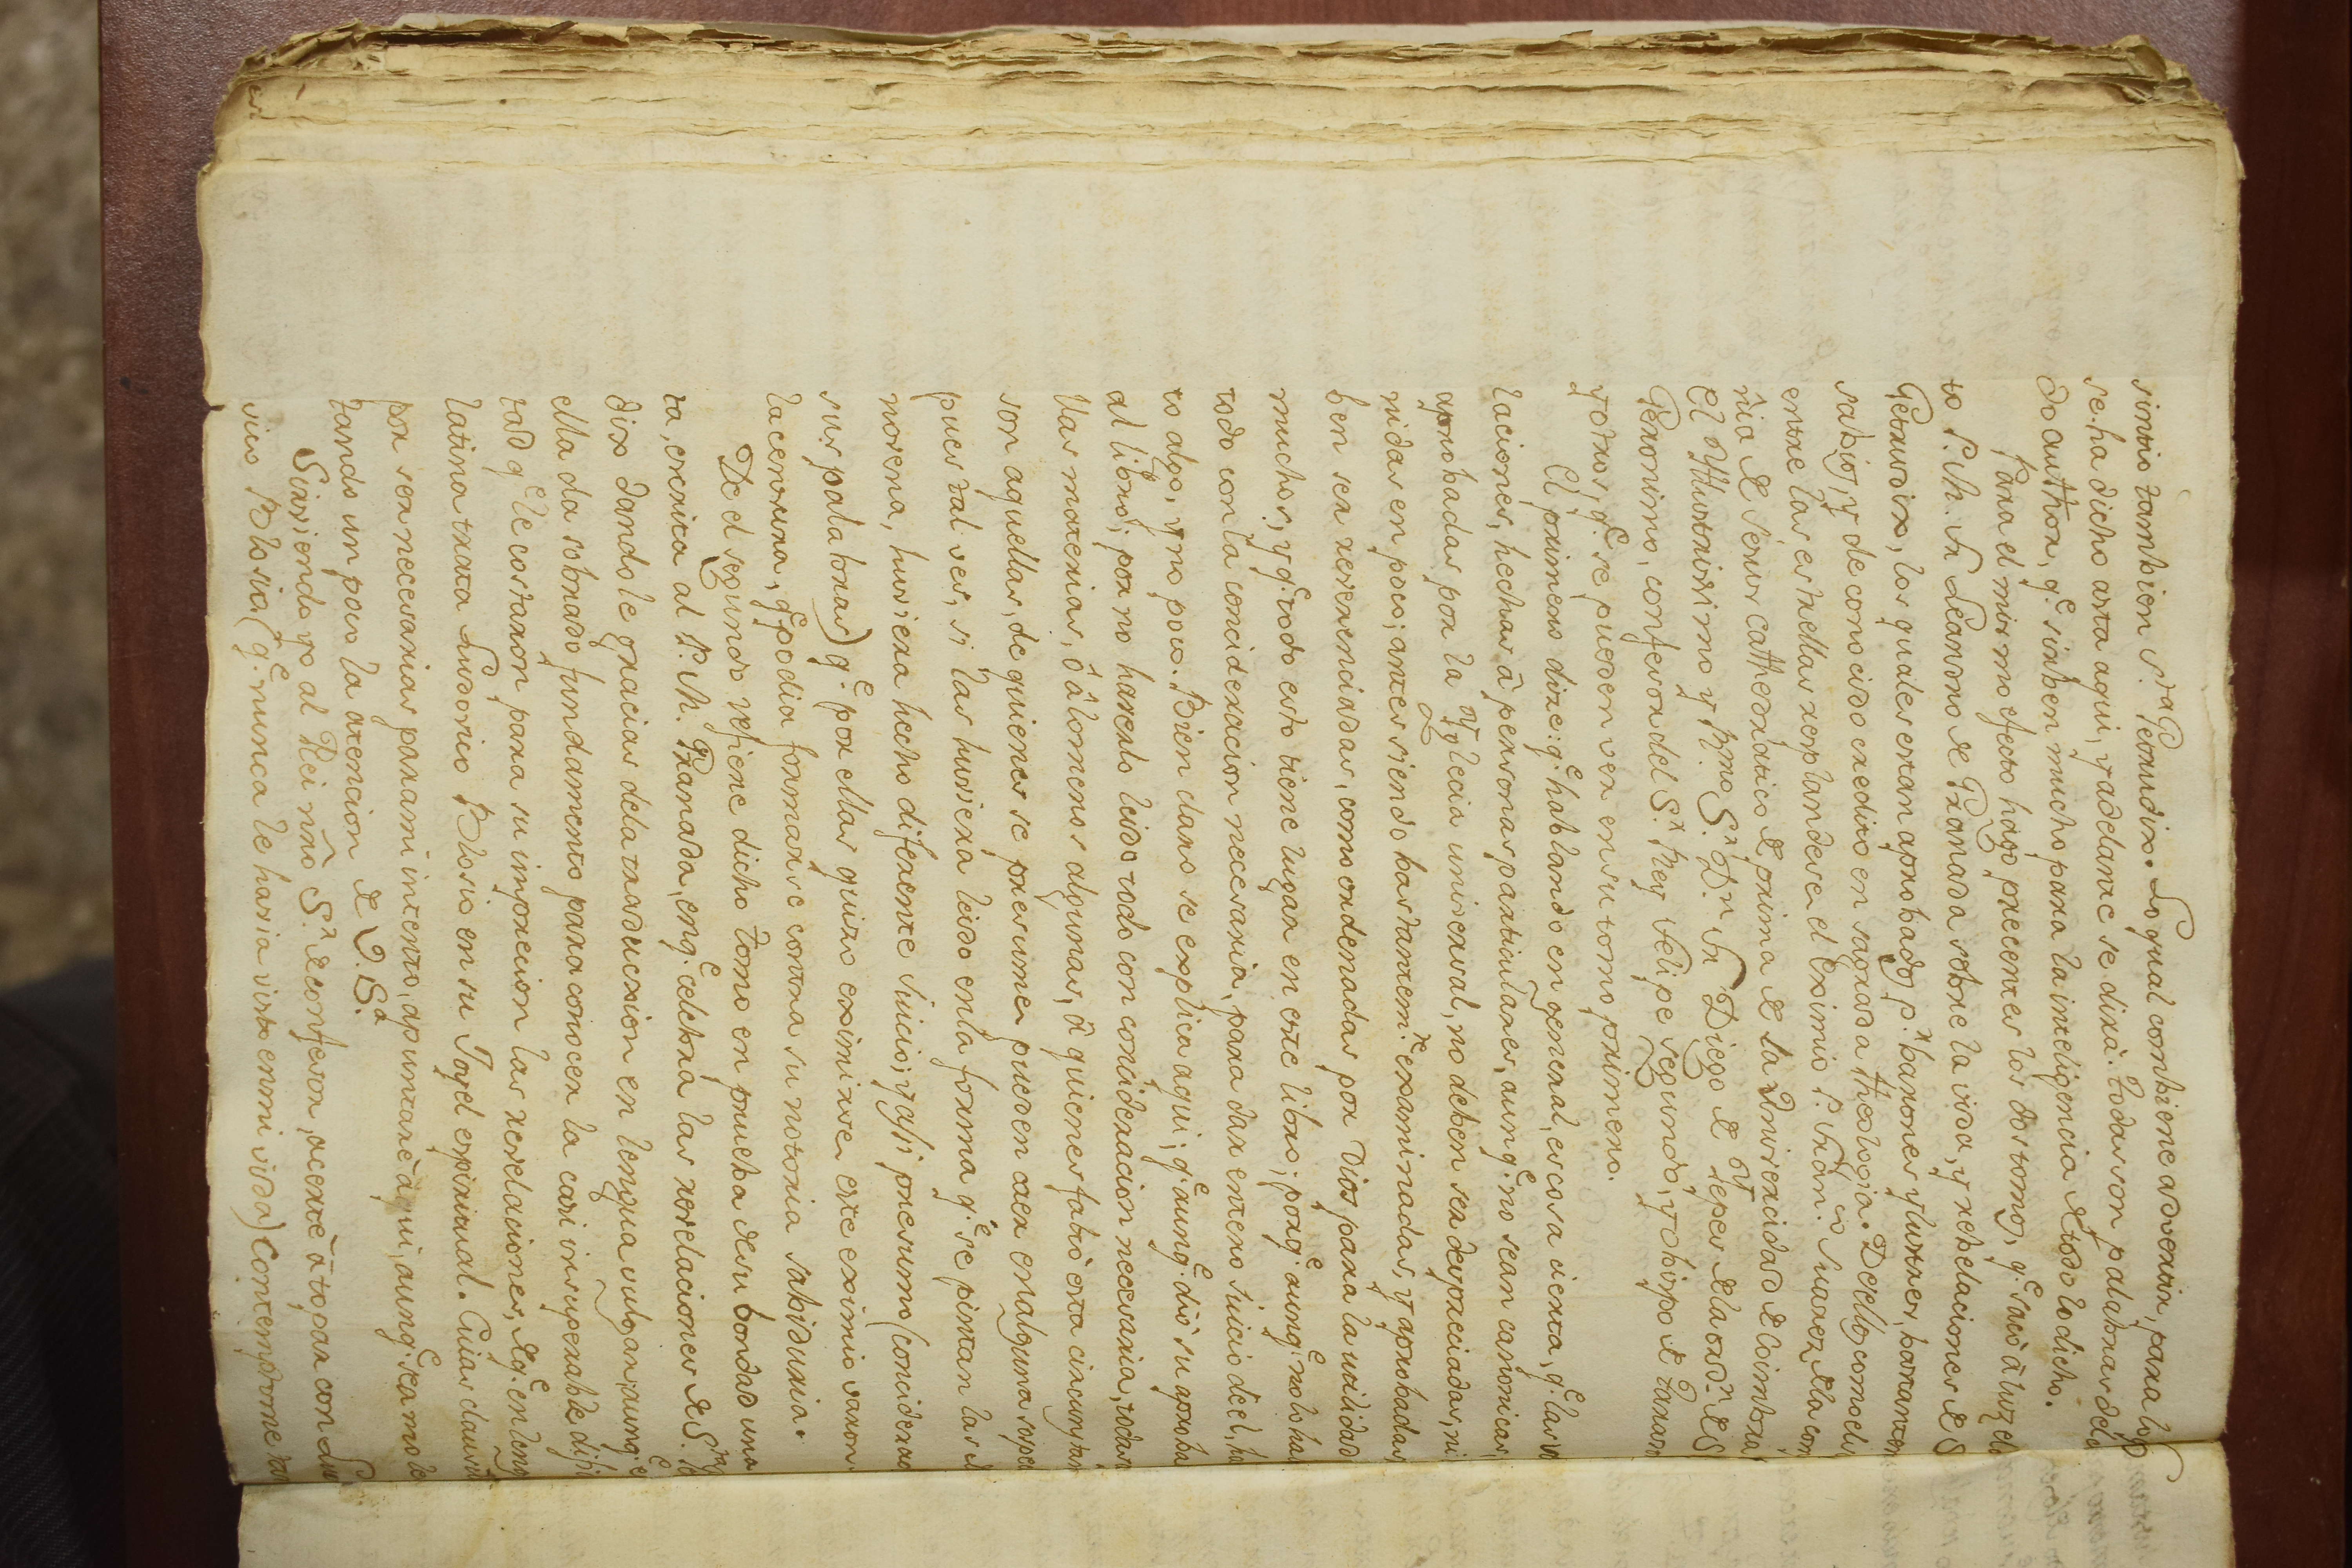 sintio tambien S.ta Getrudix. Lo qual combiene advertir, para lo q̃
se ha dicho asta aqui, y adelante se dixà. todas son palabras del
do author, q.e sirben mucho para la inteligencia de todo lo dicho.
Para el mismo efecto hago precentes los dos tomos, q.e sacò à luz el
to P. M. Fr. Leandro de Granada sobre la vida, y rebelaciones de S
Getrudix, los quales estan aprobados p.r barones ylustres, bastante
sabios, y de conocido credito en sagrada theologia. De ellos como el
entre las estrellas resplandese el Eximio P. Fran.co Suarez de la com
ñia de Jesus cathedratico de prima de la Univercidad de Coimbra
el Yllustrissimo y Rmo S.r D.n Fr. Diego de Yepes de la ord.n de S
Geronimo, confesor del S.r Rey Felipe segundo, y obispo de Taraso
y otros, q.e se pueden ver en su tomo primero.
El primero dize: q.e hablando en general, es cosa cierta, q.e las re
laciones, hechas à personas particulares, aunq.e no sean canonicas,
aprobadas por la Yglecia universal, no deben ser despreciadas, ni
nidas en poco; antes siendo bastantem.te examinadas, y aprobadas
ben ser reverenciadas, como ordenadas por Dios para la utilidad
muchos; y q.e todo esto tiene lugar en este libro; porq.e aunq.e no lo ha
todo con la concideracion necesaria, para dar entero juicio de el, ha
to algo, y no poco. Bien claro se explica aqui, q.e aunq.e diò su aproba
al libro; por no haverlo leido todo con concideracion necesaria, todas
llas materias, ò à lo menos algunas, à quienes faltò esta circunstan
son aquellas, de quienes se presume pueden caer en alguna sospe
pues tal ves, si las huviera leido en la forma q.e se pintan las d
noxena, huviera hecho diferente juicio; y assi presumo (concideran
sus palabras) q.e por ellas quiso eximirse este eximio varon
la censura, q.e podia formarse contra su notoria sabiduria.
De el segundo refiene dicho tomo en prueba de su bondad una
ta, escrita al P. M. Granada, en q.e celebra las revelaciones de S.ta
dix dandole gracias de la traduccion en lengua vulgar, aunq.e
ella da sobrado fundamento para conocer la casi insuperable difi
tad q.e le costaron para su imprecion las revelaciones, de q.e en leng
latina trata Ludovico Blosio en su Joyel espiritual. Cuias clausu
por ser necesarias para mi intento, apuntarè aqui, aunq.e sea mole
tando un poco la atencion de V. S.a
Sirviendo yo al Rei nr̃o S.r de confesor, acertè à topar con Lu
vico Blosio (q.e nunca le havia visto en mi vida) Contemptome tan